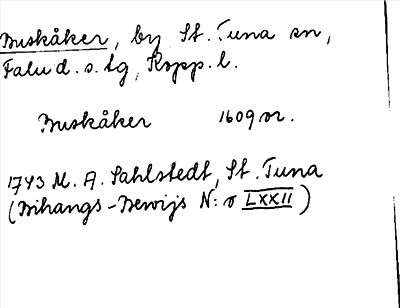 Buskåker, by St. Tuna sn,
Falu d. s. lg, Kopp. l.
Buskåker 1609 or.
1743 M. A. Sahlstedt, St. Tuna
(Bihangs-Bewijs N:o LXXII)